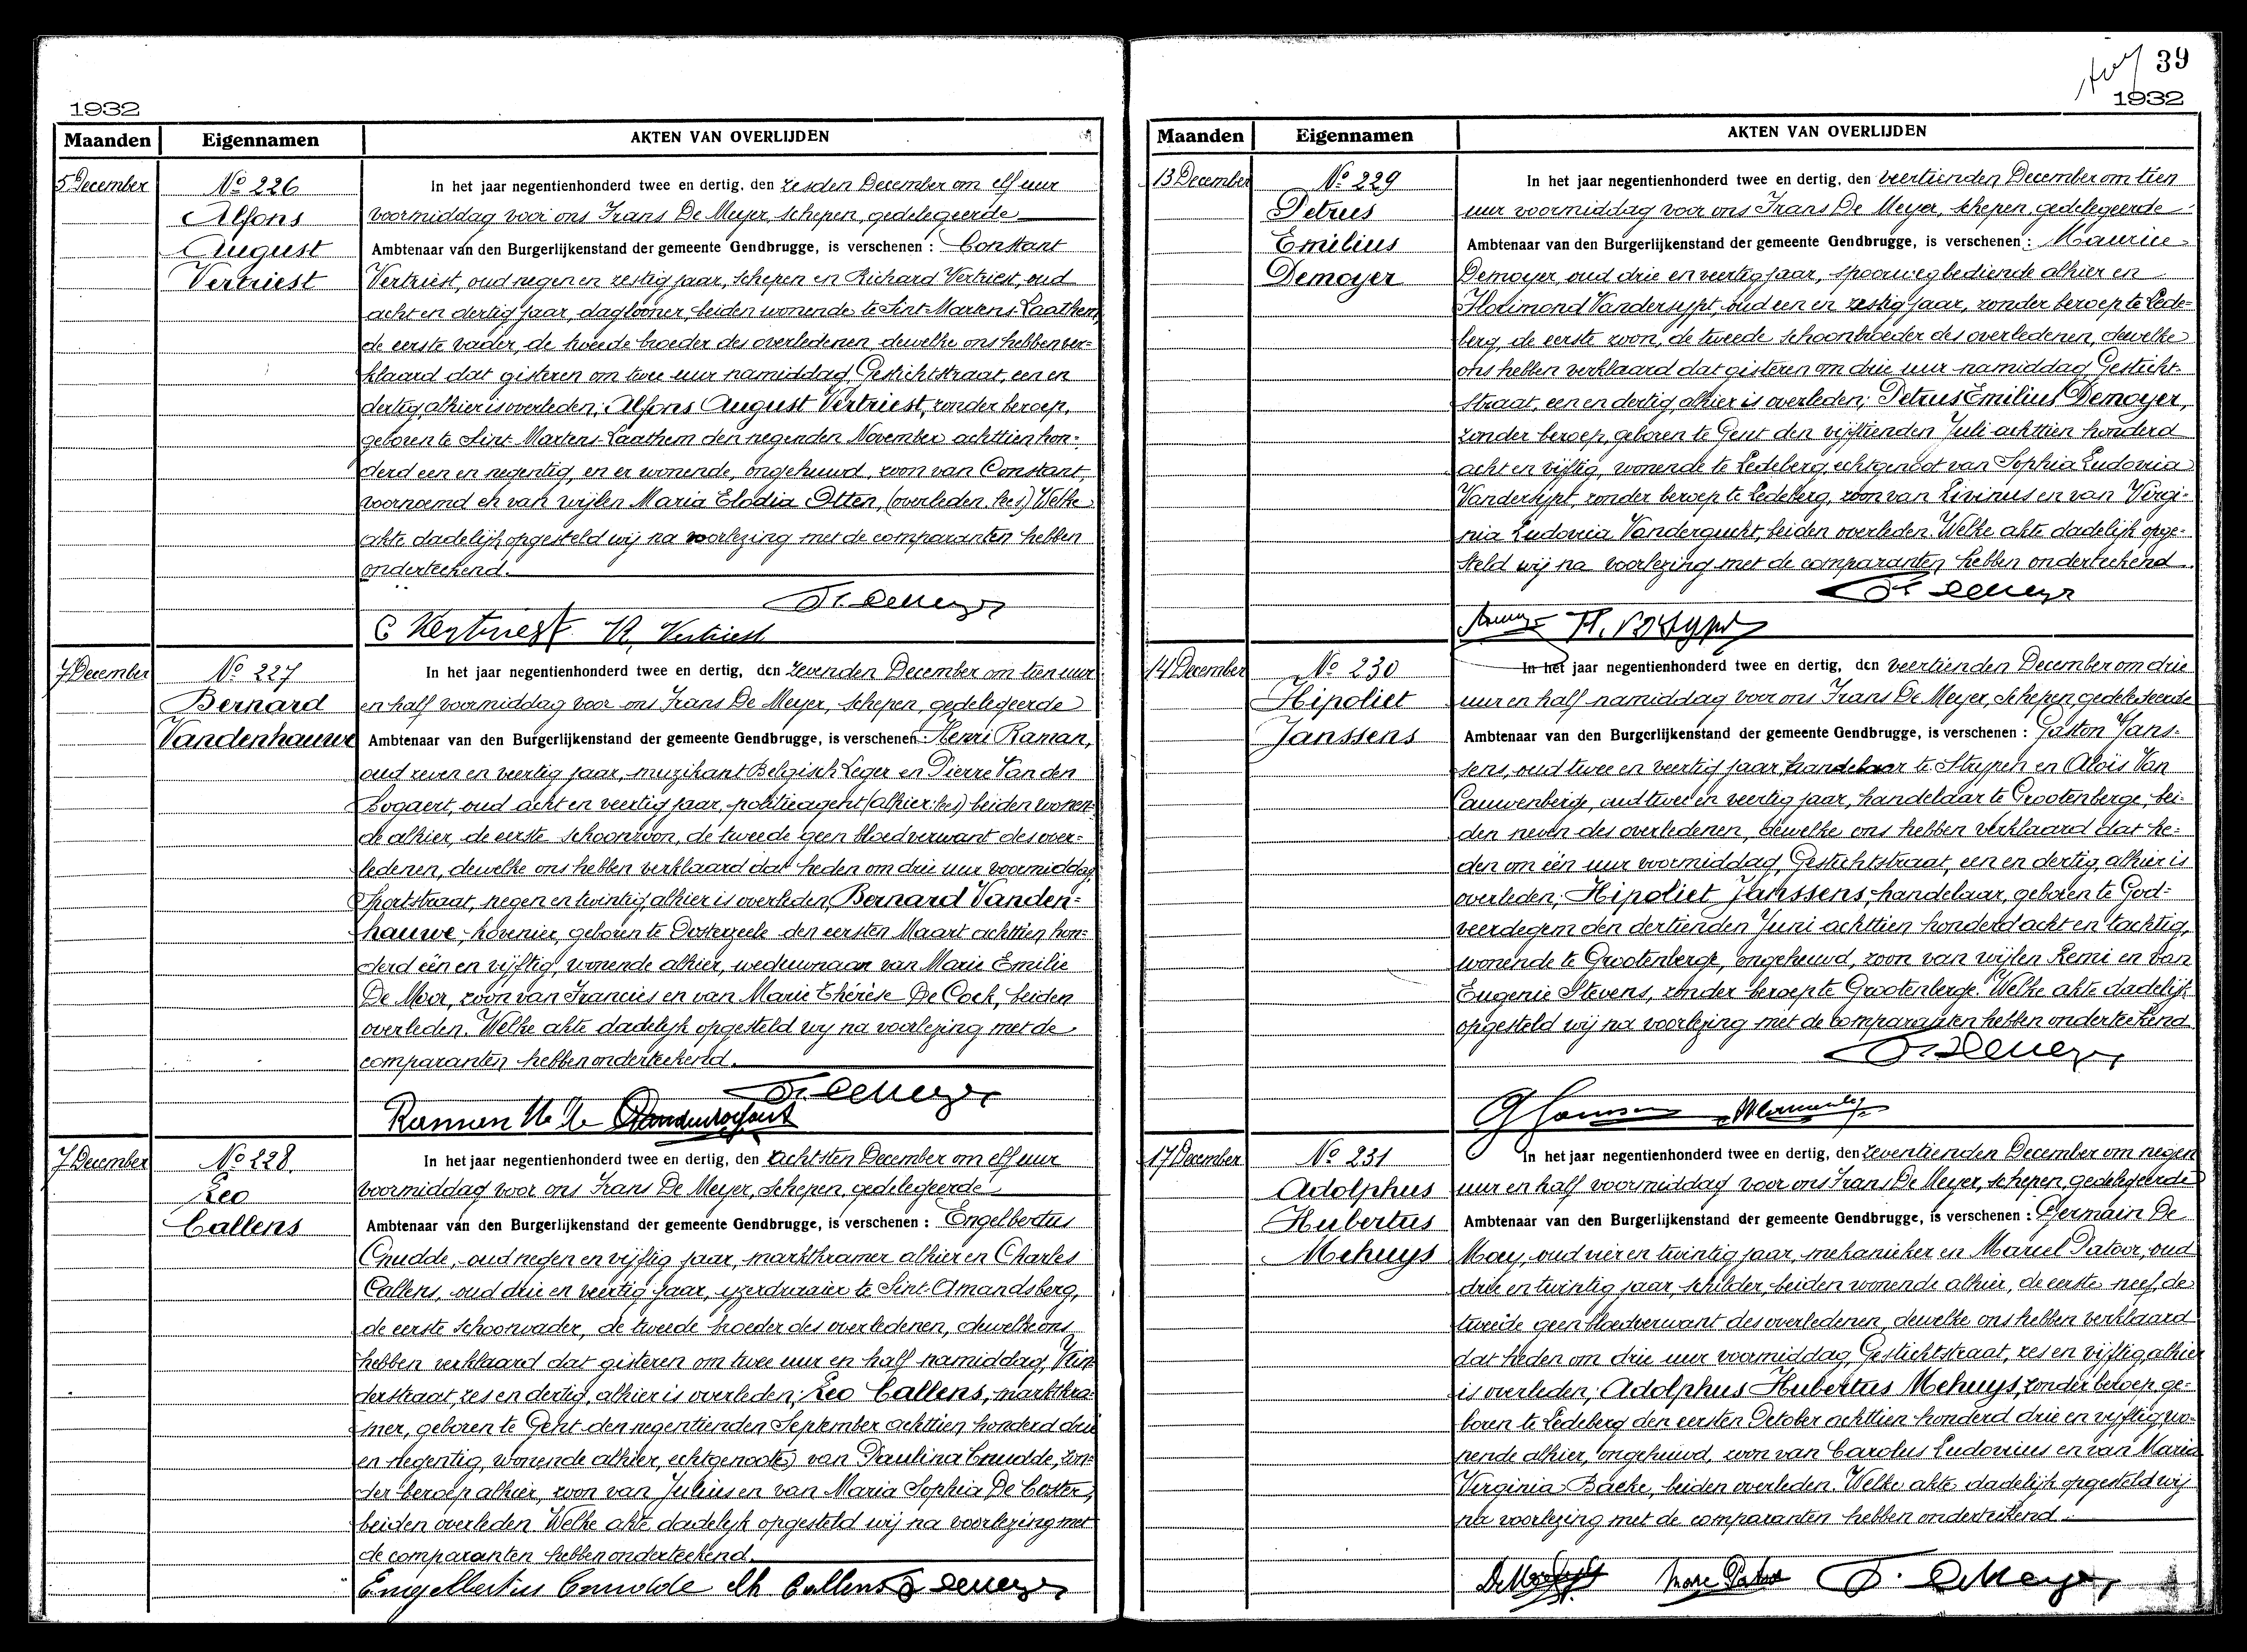 1932
Maanden Eigennamen AKTEN VAN OVERLIJDEN
5 December
No 226
Alfons
August
Vertriest
In het jaar negentienhonderd twee en dertig, den zesden December om elf uur
voormiddag voor ons Frans De Meyer, schepen, gedelegeerde
Ambtenaar van den Burgerlijkenstand der gemeente Gendbrugge, is verschenen : Constant
Vertriest, oud negen en zestig jaar, schepen en Richard Vertriest, oud
acht en dertig jaar, daglooner, beiden wonende te Sint-Martens-Laathem,
de eerste vader, de tweede broeder des overledenen, dewelke ons hebben ver-
klaard dat gisteren om twee uur namiddag, Gestichtstraat, een en
dertig, alhier is overleden; Alfons August Vertriest, zonder beroep,
geboren te Sint-Martens-Laathem den negenden November achttien hon-
derd een en negentig, en er wonende, ongehuwd, zoon van Constant,
voornoemd en van wijlen Maria Elodia Otten, (overleden, lees) Welke
akte dadelijk opgesteld wij na voorlezing met de comparanten hebben
onderteekend.
Fr. De Meyer
C Vertriest R. Vertriest
7 December
No 227
Bernard
Vandenhauwe
In het jaar negentienhonderd twee en dertig, den zevenden December om tien uur
en half voormiddag voor ons Frans De Meyer, schepen, gedelegeerde
Ambtenaar van den Burgerlijkenstand der gemeente Gendbrugge, is verschenen : Henri Raman,
oud zeven en veertig jaar, muzikant Belgisch Leger en Pierre Van den
Bogaert, oud acht en veertig jaar, politieagent (alhier: lees) beiden wonen-
de alhier, de eerste schoonzoon, de tweede geen bloedverwant des over-
ledenen, dewelke ons hebben verklaard dat heden om drie uur voormiddag
Sportstraat, negen en twintig, alhier is overleden, Bernard Vanden-
hauwe, hovenier, geboren te Oosterzeele den eersten Maart achttien hon-
derd één en vijftig, wonende alhier, weduwnaar van Marie Emilie
De Moor, zoon van Francies en van Marie Thérèse De Cock, beiden
overleden. Welke akte dadelijk opgesteld wij na voorlezing met de
comparanten hebben onderteekend.
Fr. De Meyer
Raman
7 December
No 228.
Leo
Callens
In het jaar negentienhonderd twee en dertig, den achtsten December om elf uur
voormiddag voor ons Frans De Meyer, schepen, gedelegeerde
Ambtenaar van den Burgerlijkenstand der gemeente Gendbrugge, is verschenen : Engelbertus
Cnudde, oud negen en vijftig jaar, marktkramer alhier en Charles
Callens, oud drie en veertig jaar, ijzerdraaier te Sint-Amandsberg,
de eerste schoonvader, de tweede broeder des overledenen, dewelke ons
hebben verklaard dat gisteren om twee uur en half namiddag,
derstraat, zes en dertig, alhier is overleden; Leo Callens, marktkra-
mer, geboren te Gent den negentienden September achttien honderd drie
en negentig, wonende alhier, echtgenoote van Paulina Cnudde, zon-
der beroep alhier, zoon van Julius en van Maria Sophia De Coster,
beiden overleden. Welke akte dadelijk opgesteld wij na voorlezing met
de comparanten hebben onderteekend.
Engelbertus Cnudde Ch Callens Fr De Meyer
39
1932
Maanden Eigennamen AKTEN VAN OVERLIJDEN
13 December
No 229
Petrus
Emilius
Demoyer
In het jaar negentienhonderd twee en dertig, den veertienden December om tien
uur voormiddag voor ons Frans De Meyer, schepen, gedelegeerde
Ambtenaar van den Burgerlijkenstand der gemeente Gendbrugge, is verschenen : Maurice
Demoyer, oud drie en veertig jaar, spoorwegbediende alhier en
Florimond Vandersypt, oud een en zestig jaar, zonder beroep te Lede-
berg, de eerste zoon, de tweede schoonbroeder des overledenen, dewelke
ons hebben verklaard dat gisteren om drie uur namiddag, Gesticht-
straat, een en dertig, alhier is overleden; Petrus Emilius Demoyer,
zonder beroep, geboren te Gent den vijftienden Juli achttien honderd
acht en vijftig, wonende te Ledeberg, echtgenoot van Sophia Ludovica
Vandersypt, zonder beroep te Ledeberg, zoon van Livinus en van Virgi-
nia Ludovica Vandergucht, beiden overleden. Welke akte dadelijk opge-
steld wij na voorlezing met de comparanten hebben onderteekend.
Fr De Meyer
14 December
No 230
Hipoliet
Janssens
In het jaar negentienhonderd twee en dertig, den veertienden December om drie
uur en half namiddag voor ons Frans De Meyer, schepen, gedelegeerde
Ambtenaar van den Burgerlijkenstand der gemeente Gendbrugge, is verschenen : Gaston Jans-
sens, oud twee en veertig jaar, handelaar te Strypen en Aloïs Van
Cauwenberge, oud twee en veertig jaar, handelaar te Grootenberge, bei-
den neven des overledenen, dewelke ons hebben verklaard dat he-
den om één uur voormiddag, Gestichtstraat, een en dertig, alhier is
overleden; Hipoliet Janssens, handelaar, geboren te God-
veerdegem den dertienden Juni achttien honderd acht en tachtig,
wonende te Grootenberge, ongehuwd, zoon van wijlen Remi en van
Eugenie Stevens, zonder beroep te Grootenberge. Welke akte dadelijk
opgesteld wij na voorlezing met de comparanten hebben onderteekend
Fr De Meyer
G Janssens
17 December
No 231
Adolphus
Hubertus
Mehuys
In het jaar negentienhonderd twee en dertig, den zeventienden December om negen
uur en half voormiddag voor ons Frans De Meyer, schepen, gedelegeerde
Ambtenaar van den Burgerlijkenstand der gemeente Gendbrugge, is verschenen : Germain De
Moey, oud vier en twintig jaar, mekanieker en Marcel Patoor, oud
drie en twintig jaar, schilder, beiden wonende alhier, de eerste neef, de
tweede geen bloedverwant des overledenen, dewelke ons hebben verklaard
dat heden om drie uur voormiddag, Gestichtstraat, zes en vijftig, alhier
is overleden; Adolphus Hubertus Mehuys, zonder beroep, ge-
boren te Ledeberg den eersten October achttien honderd drie en vijftig, wo-
nende alhier, ongehuwd, zoon van Carolus Ludovicus en van Maria
Virginia Backe, beiden overleden. Welke akte dadelijk opgesteld wij
na voorlezing met de comparanten hebben onderteekend.
F. De Meyer